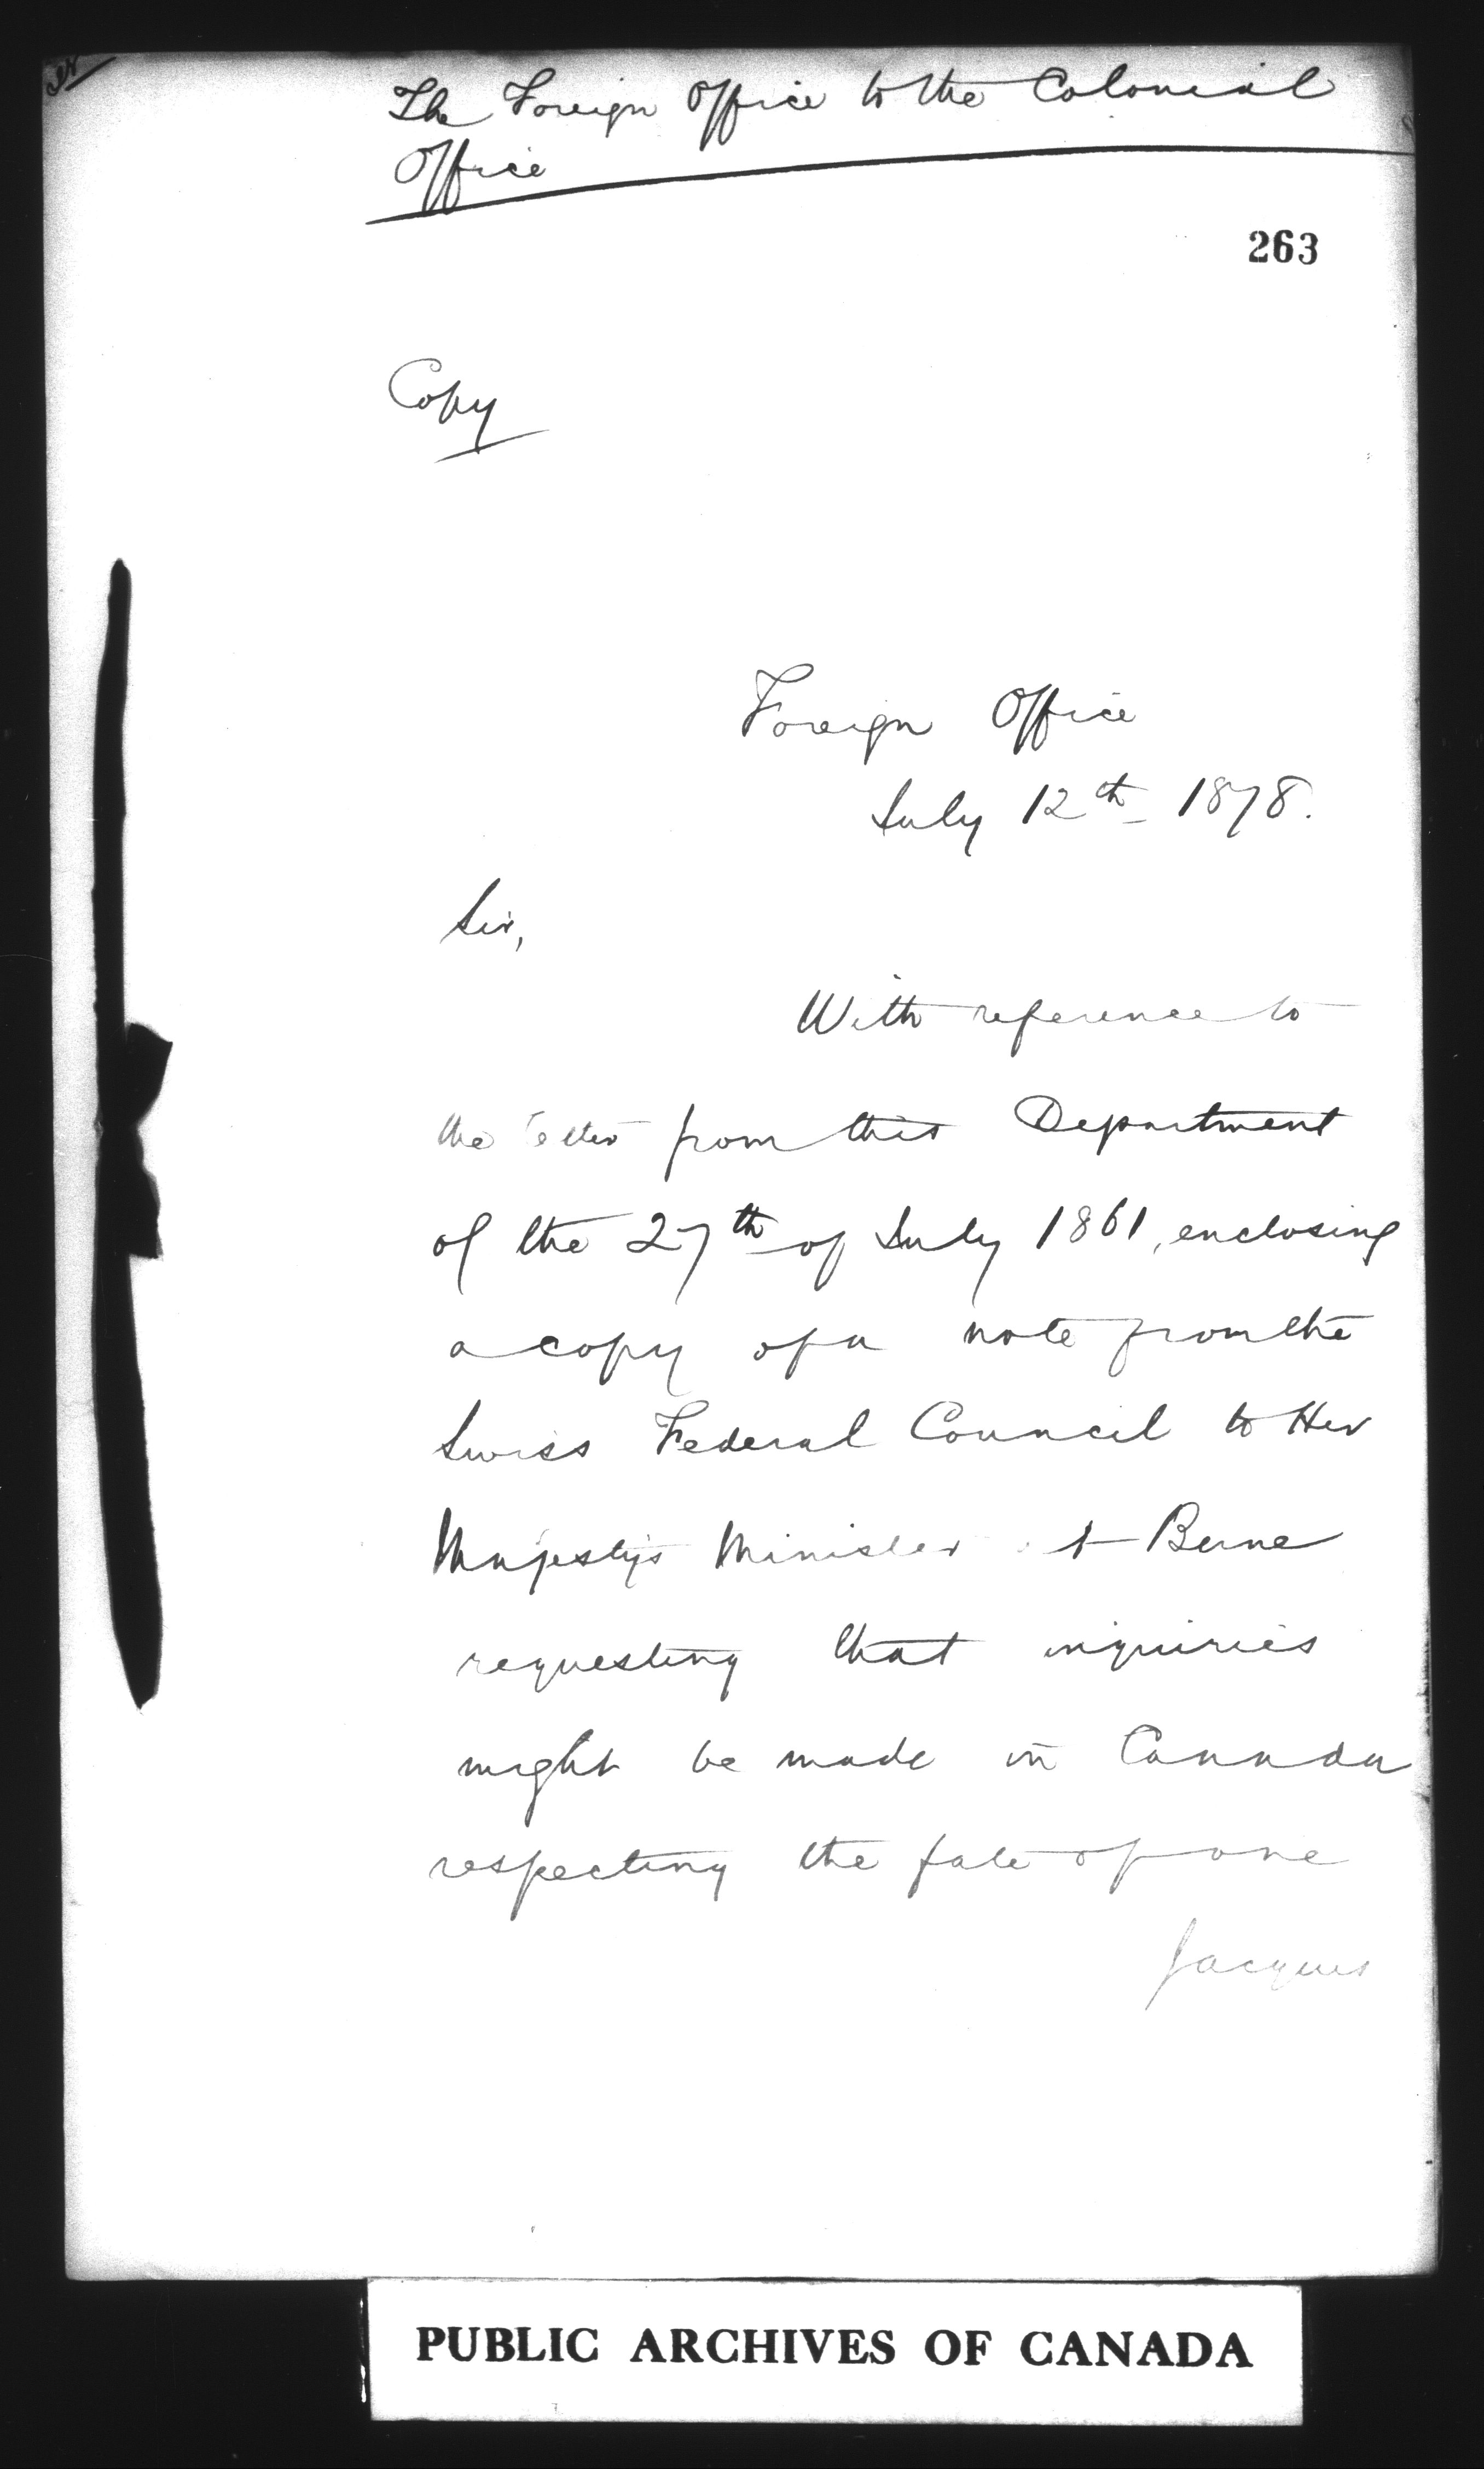 The Foreign Office to the Colonial
Office
263
Copy
Foreign Office
July 12th 1878.
Sir,
With reference to
the letter from this Department
of the 27th of July 1861, enclosing
a copy of a note from the
Swiss Federal Council to Her
Majesty's Minister at Berne
requesting that inquiries
might be made in Canada
respecting the fate of one
Jacques
PUBLIC ARCHIVES OF CANADA